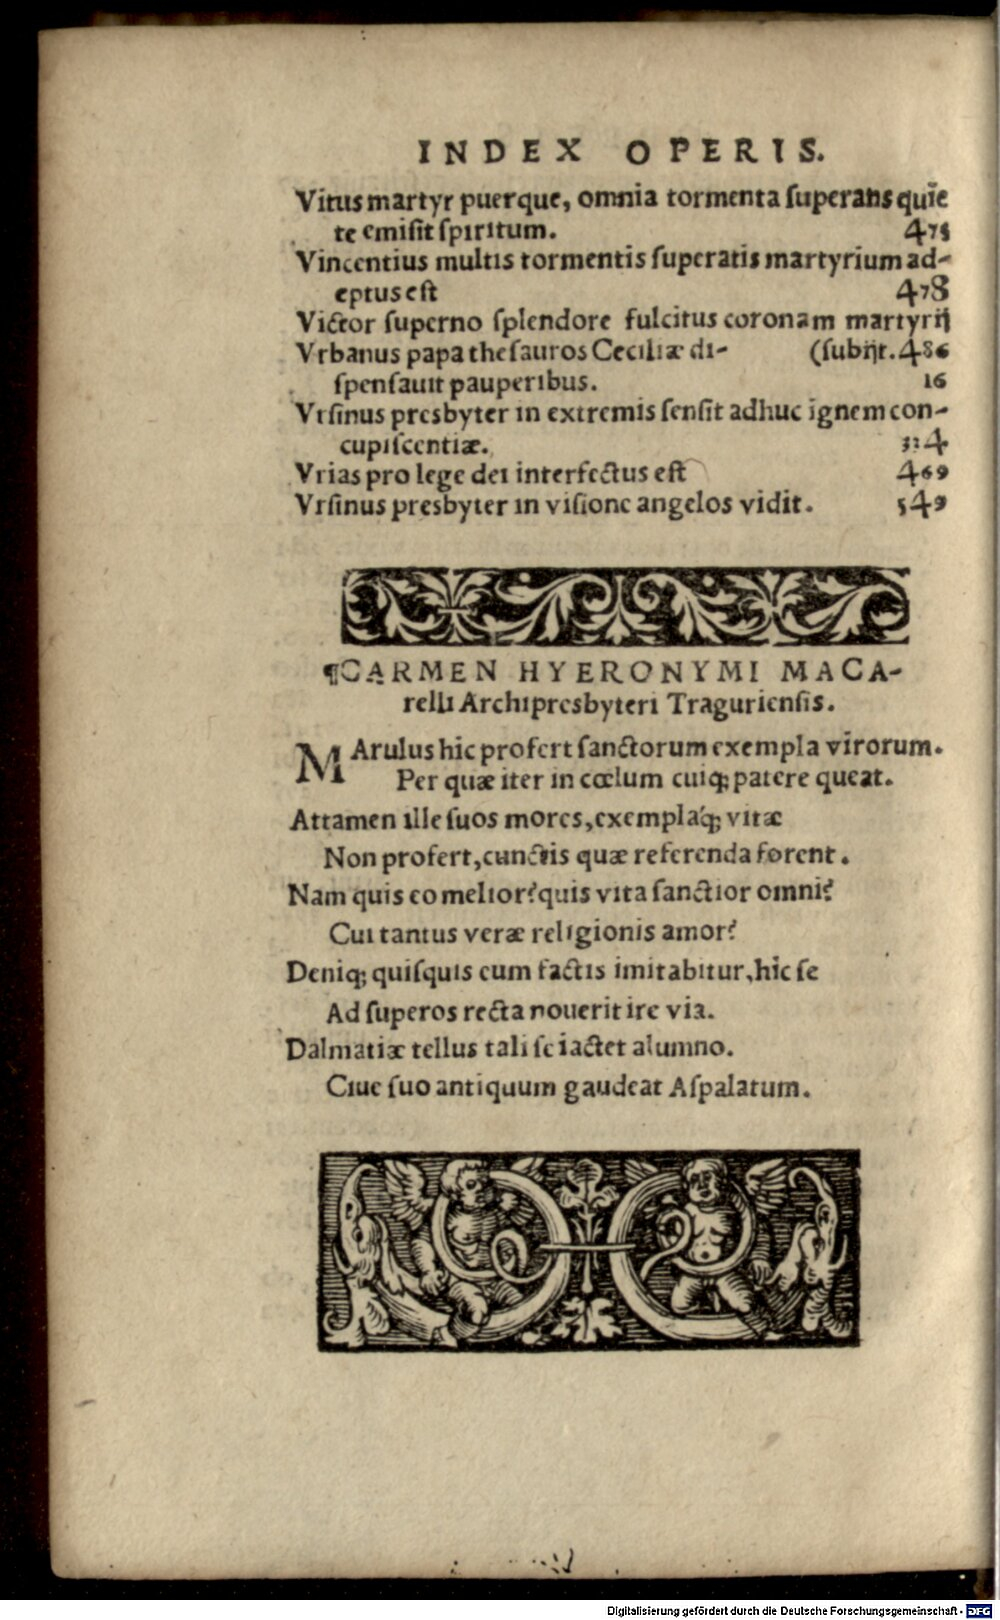 INDEX OPERIS.
Vitus martyr puerque, omnia tormenta ſuperans quīe
te emiſit ſpiritum. 475
Vincentius multis tormentis ſuperatis martyrium ad-
eptus eſt 478
Victor ſuperno ſplendore fulcitus coronam martyrij
Vrbanus papa theſauros Ceciliæ di- (ſubijt. 486
ſpenſauit pauperibus. 16
Vrſinus presbyter in extremis ſenſit adhuc ignem con-
cupiſcentiæ. 324
Vrias pro lege dei interfectus eſt 469
Vrſinus presbyter in viſione angelos vidit. 549
¶CARMEN HYERONYMI MACA-
relli Archipresbyteri Tragurienſis.
MArulus hic profert ſanctorum exempla virorum.
Per quæ iter in cœlum cuiq; patere queat.
Attamen ille ſuos mores, exemplaq́; vitæ
Non profert, cunctis quæ referenda forent.
Nam quis eo melior? quis vita ſanctior omni?
Cui tantus veræ religionis amor?
Deniq; quiſquis eum factis imitabitur, hic ſe
Ad ſuperos recta nouerit ire via.
Dalmatiæ tellus tali ſe iactet alumno.
Ciue ſuo antiquum gaudeat Aſpalatum.
Digitalisierung gefördert durch die Deutsche Forschungsgemeinschaft - DFG